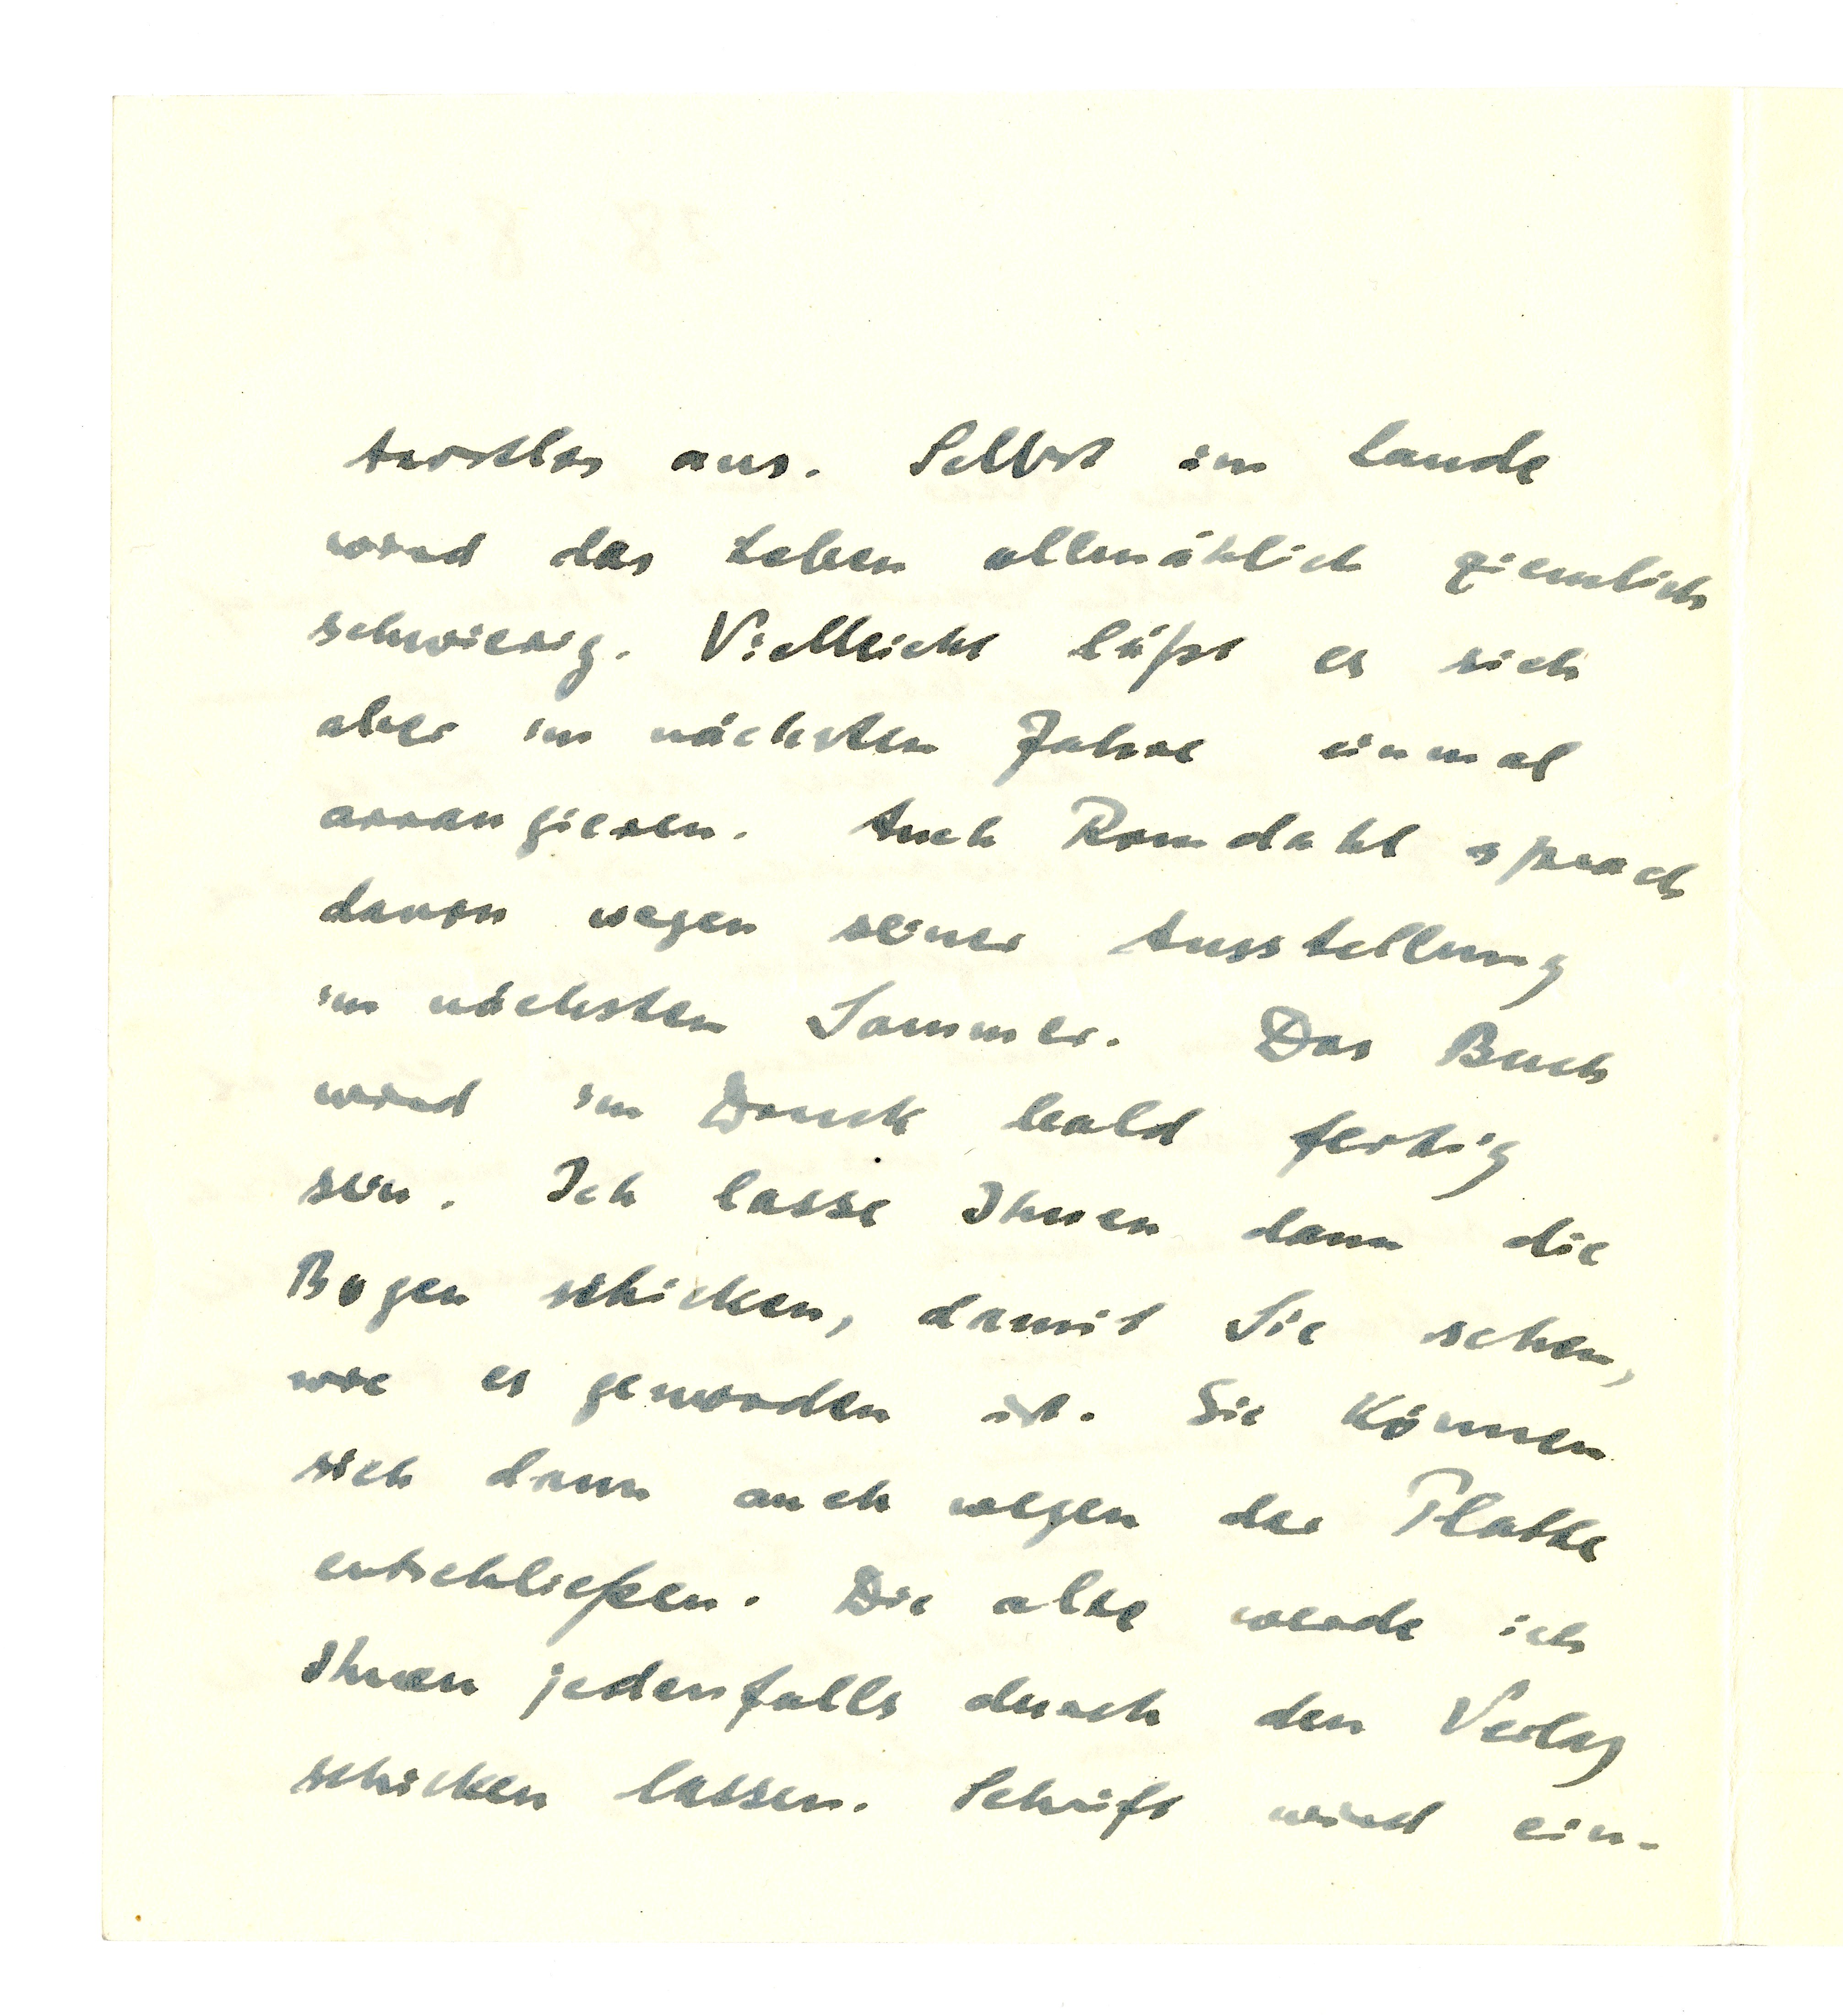 trostlos aus. Selbst im Lande
wird das Leben allmählich ziemlich
schwierig. Vielleicht läßt es sich
aber im nächsten Jahre einmal
arrangieren. Auch Romdahl sprach
davon wegen seiner Ausstellung
im nächsten Sommer. Das Buch
wird im Druck bald fertig
sein. Ich lasse Ihnen dann die
Bogen schicken, damit Sie sehen,
wie es geworden ist. Sie können
sich dann auch wegen der Platte
entschließen. Die alte werde ich
Ihnen jedenfalls durch den Verlag
schicken lassen. Schrift wird ein-